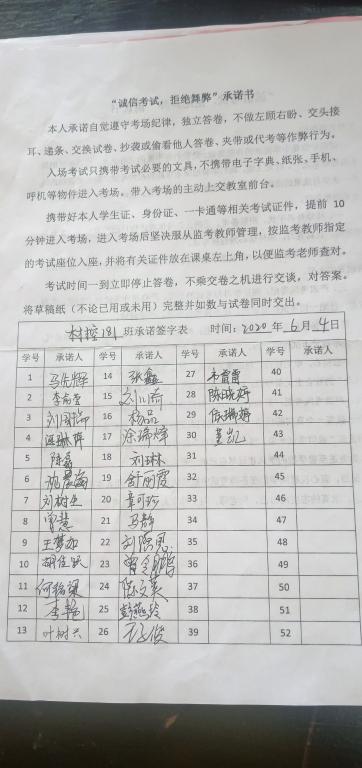 “诚信考试，拒绝舞弊”承诺书
本人承诺自觉遵守考场纪律，独立答卷，不做左顾右盼、交头接
耳、递条、交换试卷、抄袭或偷看他人答卷、夹带或代考等作弊行为。
入场考试只携带考试必要的文具，不携带电子字典、纸张、手机、
呼机等物件进入考场。带入考场的主动上交教室前台。
携带好本人学生证、身份证、一卡通等相关考试证件，提前 10
分钟进入考场，进入考场后坚决服从监考教师管理，按监考教师指定
的考试座位入座，并将有关证件放在课桌左上角，以便监考老师查对。
考试时间一到立即停止答卷，不乘交卷之机进行交谈，对答案。
将草稿纸（不论已用或未用）完整并如数与试卷同时交出。
材控181班承诺签字表 时间：2020年6月4日
学号 承诺人 学号 承诺人 学号 承诺人 学号 承诺人
1 14 张鑫 27 40
2 15 28 陈晓婷 41
3 16 杨品 29 42
4 17 30 43
5 陈鑫 18 刘琳 31 44
6 19 32 45
7 刘树生 20 章可珍 33 46
8 曾慧 21 马静 34 47
9 王梦如 22 35 48
10 胡佳跃 23 36 49
11 24 陈文英 37 50
12 李艳 25 彭燕玲 38 51
13 叶树兴 26 39 52